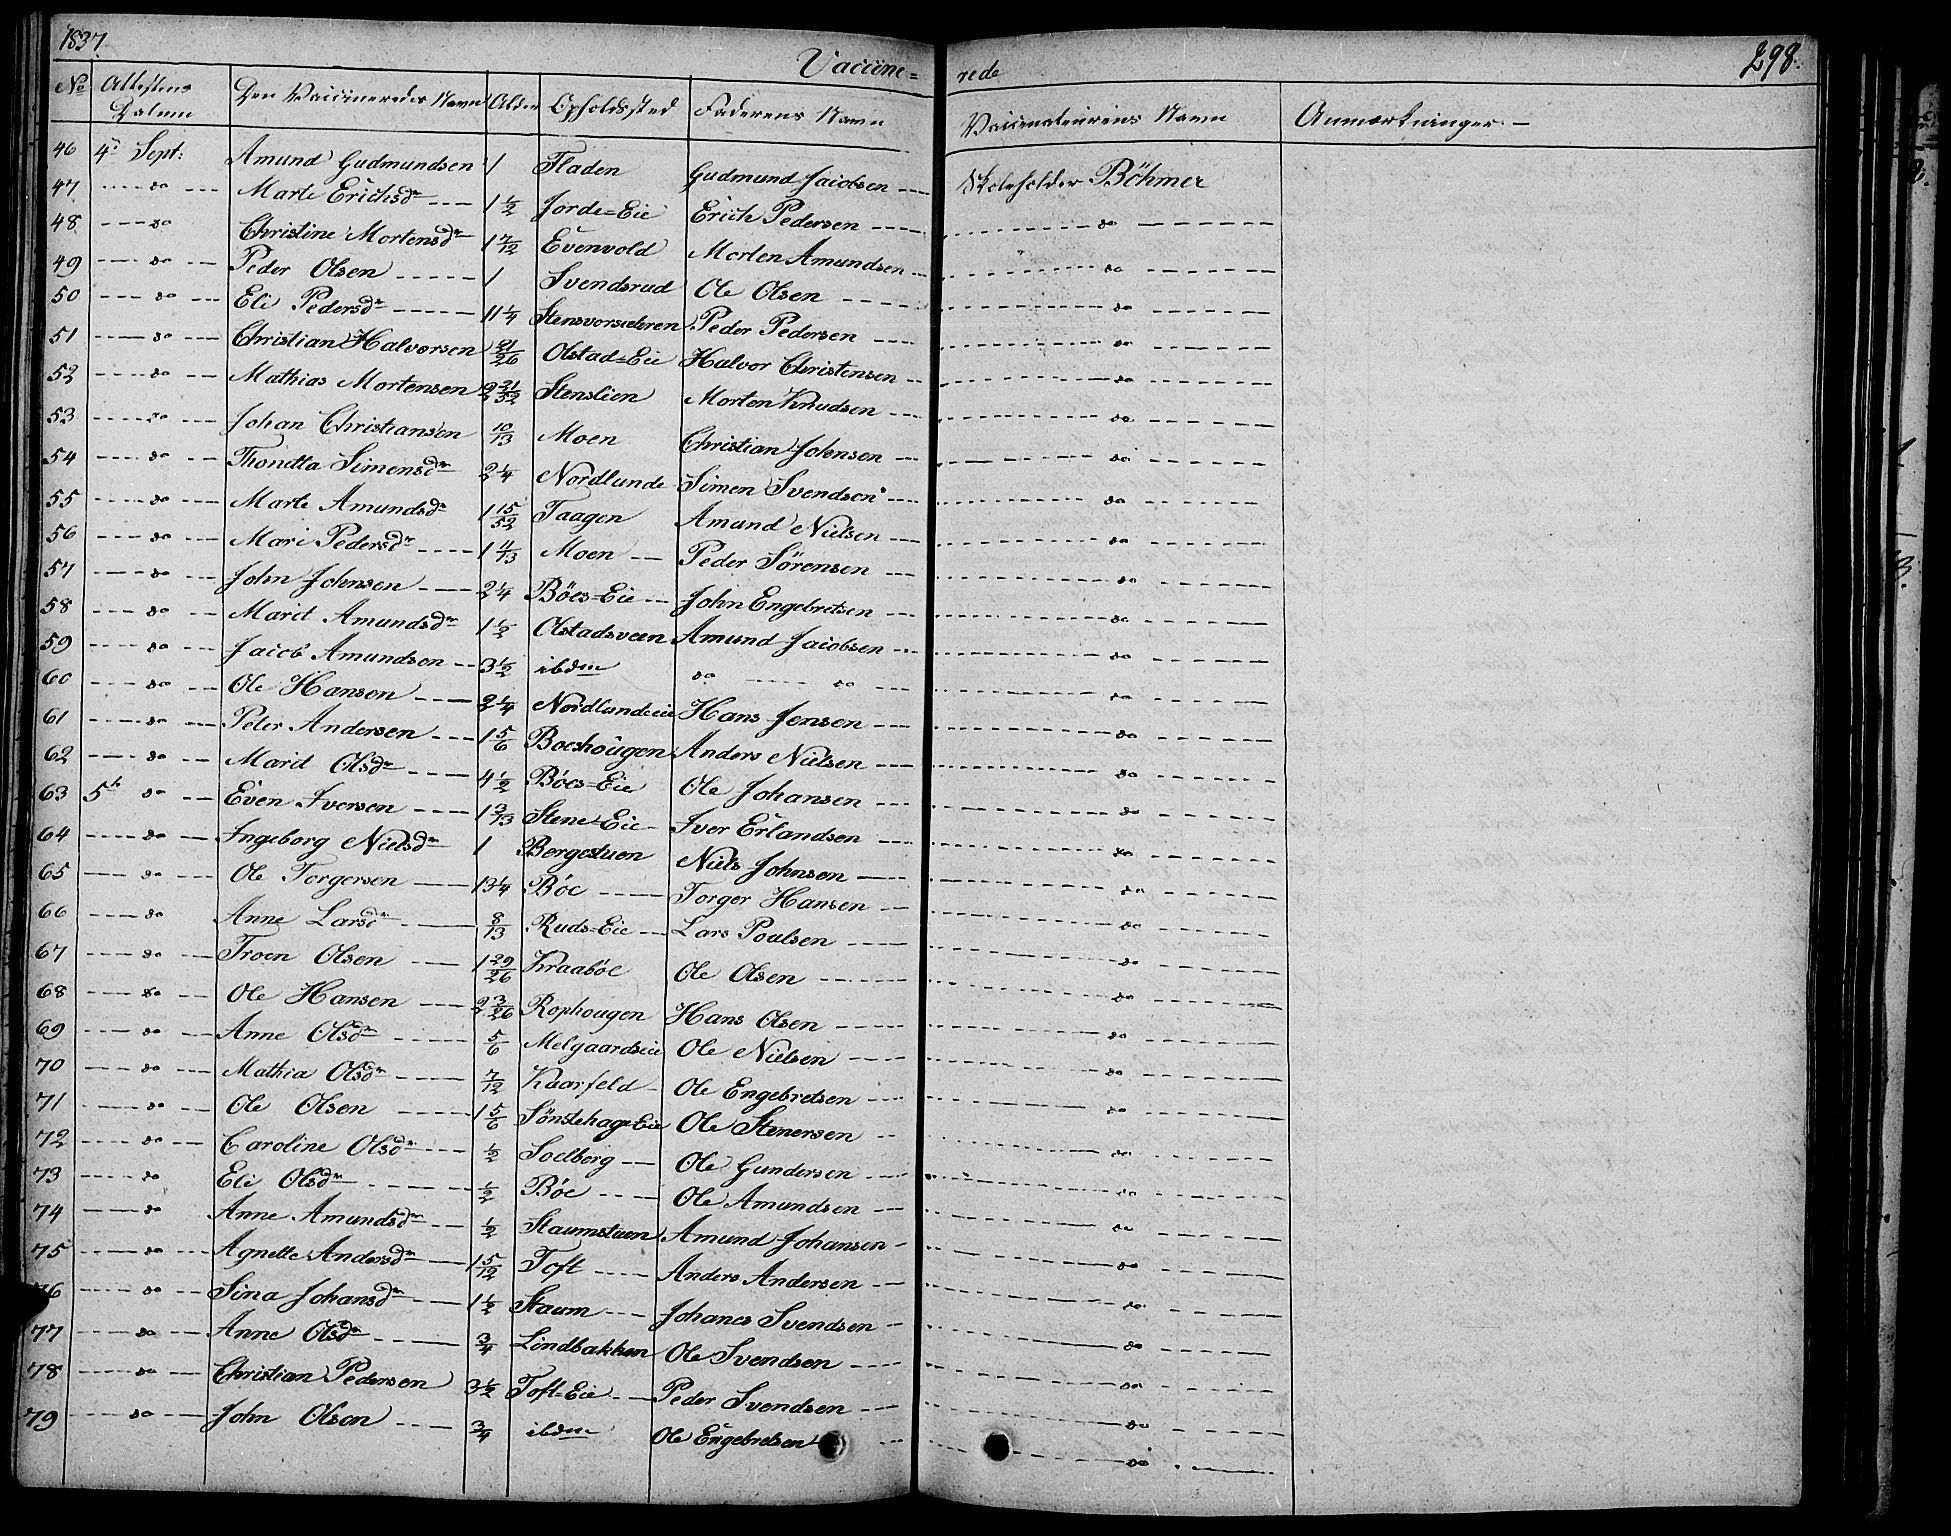 1837. Vaccine= rede 298.
No Attestens Datum Den Vaccineredes Navn Alder Opholdssted Faderens Navn Vaccinateurens Navn Anmærkninger. —
46 4de Sept: Amund Gudmundsen 1 Fladen Gudmund Jacobsen Skoleholder Böhmer
47 do Marte Erichsdr 1 1/2 Jorde=Eie Erich Pedersen do
48 do Christine Mortensdr 1 7/12 Evenvold Morten Amundsen do
49 do Peder Olsen 1 Svendsrud Ole Olsen do
50 do Eli Pedersdr 11 1/4 Stensvorsæteren Peder Pedersen do
51 do Christian Halvorsen 21/26 Olstad=Eie Halvor Christensen do
52 do Mathias Mortensen 2 21/52 Stenslien Morten Knudsen do
53 do Johan Christiansen 10/13 Moen Christian Johnsen do
54 do Thonetta Simensdr 2 1/4 Nordlunde Simen Svendsen do
55 do Marte Amundsdr 1 15/52 Taagen Amund Nielsen do
56 do Mari Pedersdr 1 4/13 Moen Peder Sörensen do
57 do John Johnsen 2 1/4 Böes=Eie John Engebretsen do
58 do Marit Amundsdr 1 1/2 Olstadsveen Amund Jacobsen do
59 do Jacob Amundsen 3 1/2 ibdm do do do
60 do Ole Hansen 2 1/4 Nordlundeeie Hans Jensen do
61 do Peter Andersen 1 5/6 Boeshougen Anders Nielsen do
62 do Marit Olsdr 4 1/2 Böes=Eie Ole Johansen do
63 5te do Even Iversen 1 2/13 Stene=Eie Iver Erlandsen do
64 do Ingeborg Nielsdr 1 Bergestuen Niels Johnsen do
65 do Ole Torgersen 13 1/4 Böe Torger Hansen do
66 do Anne Larsdr 8/13 Ruds=Eie Lars Poulsen do
67 do Troen Olsen 1 Kraaböe Ole Olsen do
68 do Ole Hansen 2 3/26 Rophougen Hans Olsen do
69 do Anne Olsdr 5/6 Melgaardseie Ole Nielsen do
70 do Mathia Olsdr 7/12 Kaarfeld Ole Engebretsen do
71 do Ole Olsen 1 5/6 Sönstehage=Eie Ole Stenersen do
72 do Caroline Olsdr 1/2 Soelberg Ole Gundersen do
73 do Eli Olsdr 1/2 Böe Ole Amundsen do
74 do Anne Amundsdr 1/2 Staumstuen Amund Johansen do
75 do Agnette Andersdr 1 5/12 Toft Anders Andersen do
76 do Sina Johansdr 1 1/2 Staum Johanes Svendsen do
77 do Anne Olsdr 3/4 Lindbakken Ole Svendsen do
78 do Christian Pedersen 3 1/2 Toft=Eie Peder Svendsen do
79 do John Olsen 3/4 ibdm Ole Engebretsen do